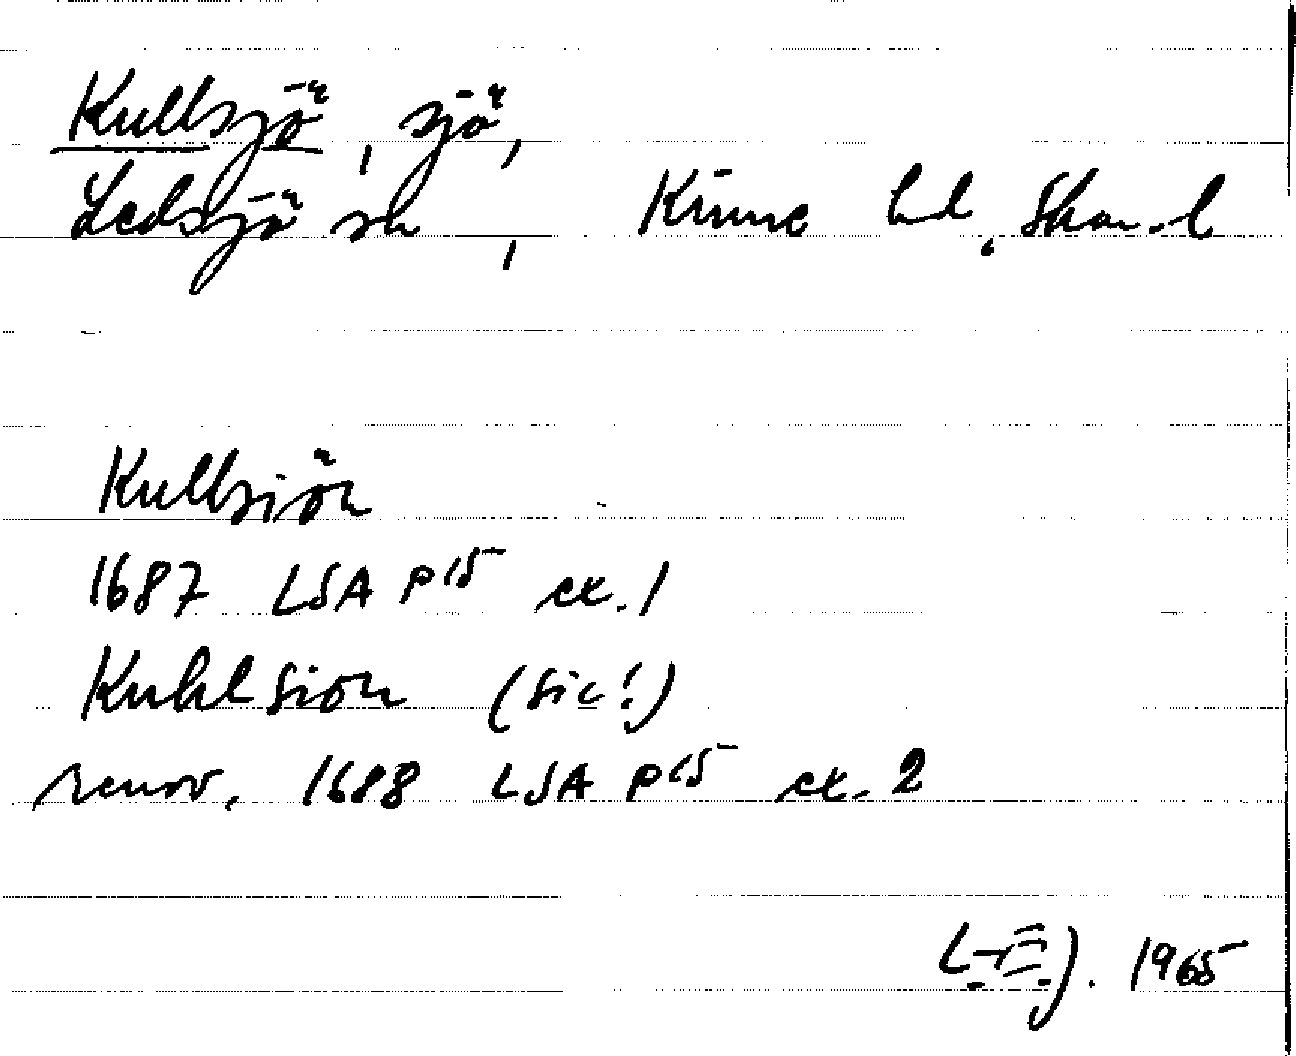 Kullsjö, sjö,
Ledsjö sn, Kinne hd, Skar.l
Kullsiön
1687 LSA P15 ex. 1
Kuhlsion (sic!)
renov. 1688 LSA P15 ex. 2
L-E J. 1965